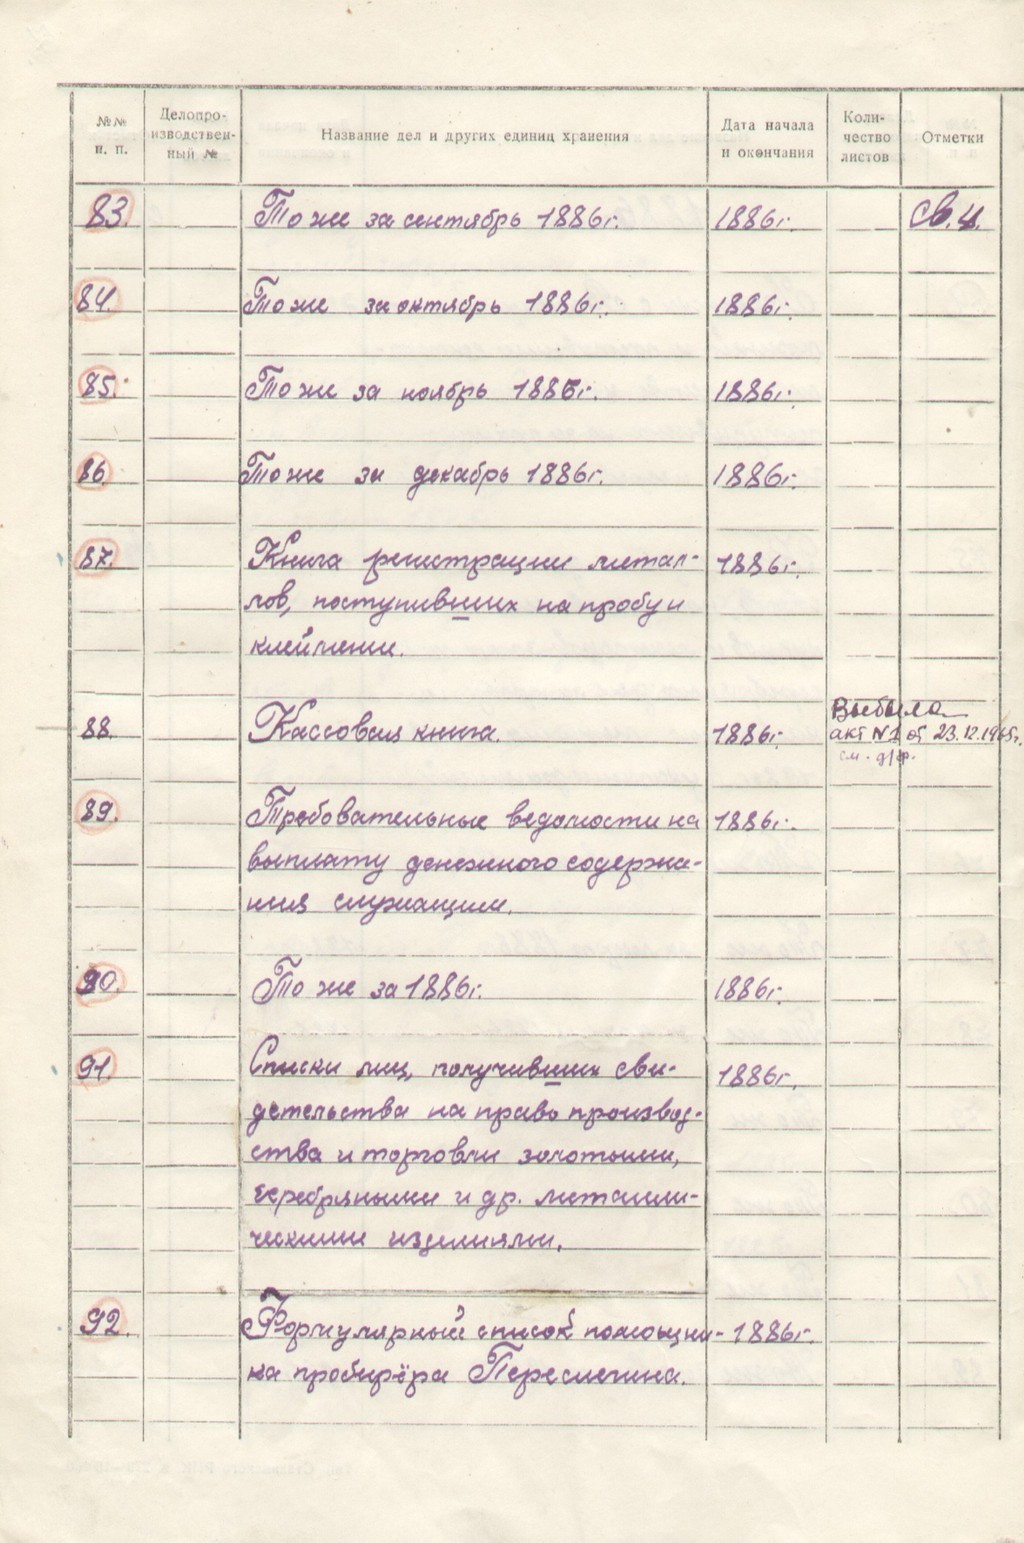 №№ п. п.
Делопро-
изводствен-
ный №
Название дел и других единиц хранения
Дата начала
и окончания
Коли-
чество
листов
Отметки
83. То же за сентябрь 1886г. 1886г. св. 4.
84. То же за октябрь 1886г. 1886г.
85. То же за ноябрь 1886г. 1886г.
86. То же за декабрь 1886г. 1886г.
87. Книга регистрации метал- 1886г.
лов, поступивших на пробу и
клеймение.
88. Кассовая книга. 1886г. Выбыла
акт №1 от 23.12.1965г.
см. д/ф.
89. Требовательные ведомости на 1886г.
выплату денежного содержа-
ния служащим.
90. То же за 1886г. 1886г.
91 Списки лиц, получивших сви- 1886г.
детельства на право производ-
ства и торговли золотыми,
серебряными и др. металли-
ческими изделиями.
92. Формулярный список помощни- 1886г.
ка пробирёра Переслегина.